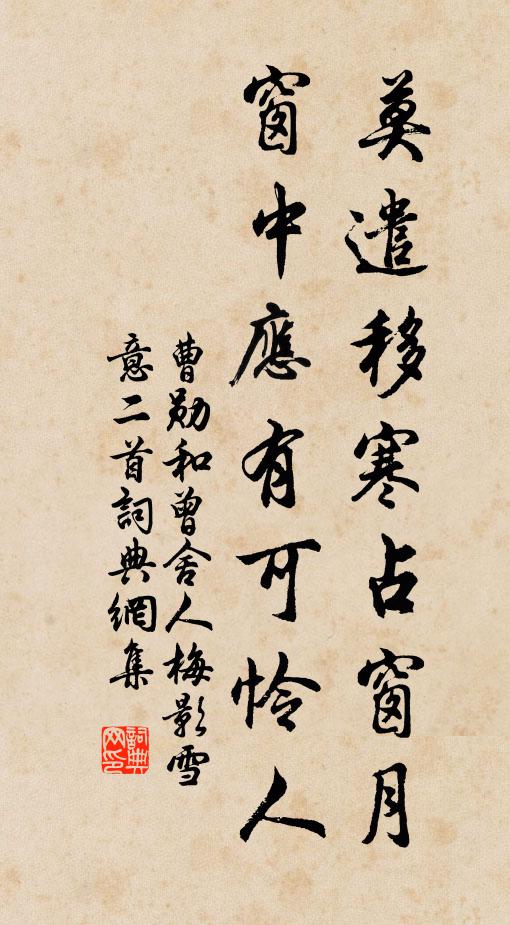 莫遣移寒占窗月
窗中應有可怜人
曹勛和曾舍人梅影雪
意二首詞典網集
詞典
网印